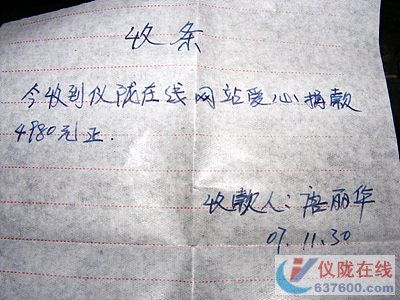 收条
今收到仪陇在线网站爱心捐款
4980元正.
收款人:唐丽华
07.11.30
仪陇在线
637600.com